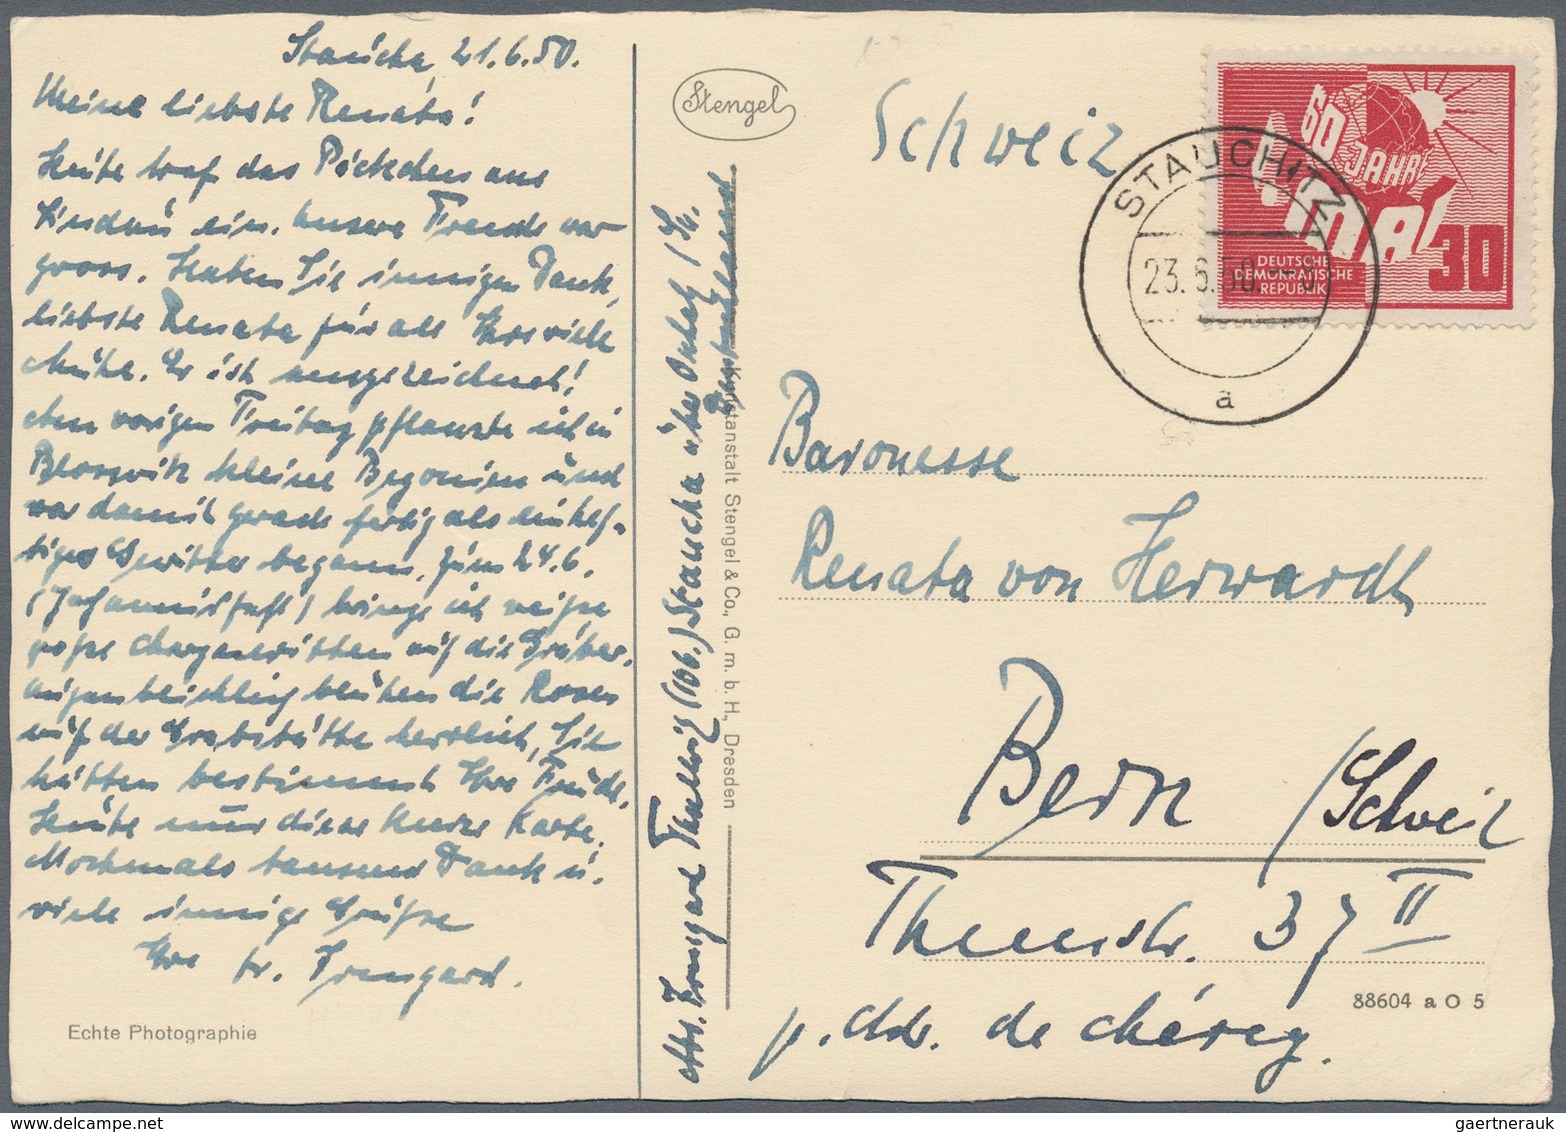 Staucha, 21.6.50.
Meine liebste Renata!
Heute traf das Päckchen aus
Lindau ein. Unsere Freude war
gross. Haben Sie innigen Dank,
liebste Renata für all Ihre viele
Mühe. Er ist ausgezeichnet!
Am vorigen Freitag pflanzte ich in
kleine Begonien und
war damit gerade fertig als ein hef-
tiges Gewitter begann. Zum 24.6.
(Johannisfest) bringe ich weisse
große Margueriten auf die Gräber.
Augenblicklich blühen die Rosen
auf der Grabstätte herrlich, Sie
hätten bestimmt Ihre Freude.
Heute nur diese kurze Karte.
Nochmals tausend Dank u.
viele innige Grüße
Ihre Irmgard.
Echte Photographie
Abs. Irmgard (10b) Staucha über Oschatz / Sa.
Deutschland
Kunstanstalt Stengel & Co., G. m. b. H., Dresden
Stengel
Schweiz
60 JAHRE
1. MAI
30
DEUTSCHE
DEMOKRATISCHE
REPUBLIK
STAUCHITZ
23.6.50
a
Baronesse
Renata von Herwardt
Bern / Schweiz
Thunstr. 37 II
p. Adr. de Chéreg.
88604 a O 5
gaertnerauk